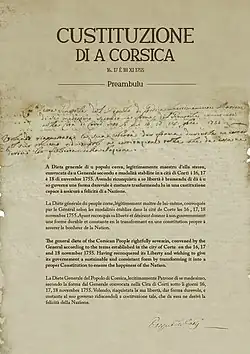 CUSTITUZIONE
DI A CORSICA
16, 17 È 18 XI 1755
Preambulu
A Dieta generale di u populu corsu, legittimamente maestru d'ella stessu,
cunvucata da u Generale secondu e modalità stabilite in a cità di Corti i 16, 17
è 18 di nuvembre 1755. Avendu riconquistu a so libertà è bramendu di dà à u
so guvernu una forma durevule è custante trasfurmendu lu in una custituzione
capace à assicurà a felicità di a Nazione.
La Diète générale du peuple corse, légitimement maître de lui-même, convoquée
par le Général selon les modalités établies dans la cité de Corte les 16, 17, 18
novembre 1755. Ayant reconquis sa liberté et désirant donner à son gouvernement
une forme durable et constante en la transformant en une constitution propre à
assurer le bonheur de la Nation.
The general diete of the Corsican People rightfully serwain, convened by the
General according to the terms established in the city of Corte on the 16, 17
and 18 november 1755. Having reconquered its Liberty and wishing to give
its government a sustainable and consistent form by transforming it into a
proper Constitution to ensure the happiness of the Nation.
La Dieta Generale del Popolo di Corsica, legitimamente Patrone di se medesimo,
secondo la forma del Generale convocata nella Città di Corti sotto li giorni 16,
17, 18 novembre 1755. Volendo, riaquistata la sua libertà, dar forma durevole, e
costante al suo governo riducendoli a costituzione tale, che da essa ne derivi la
felicità della Nazione.